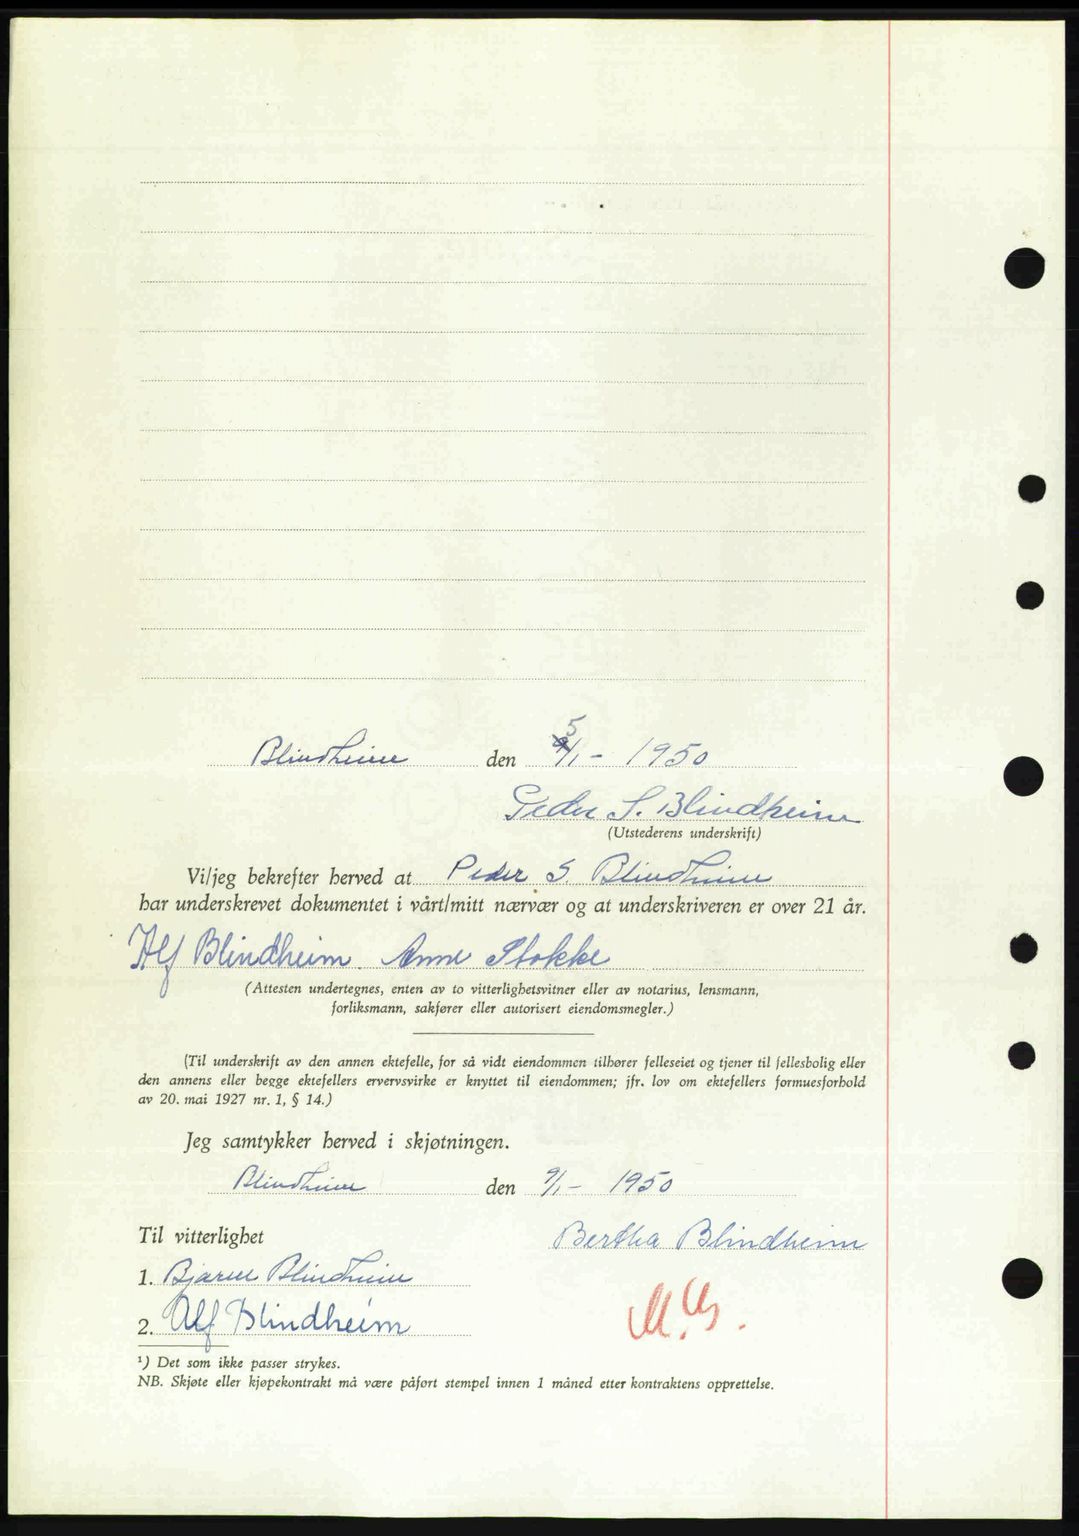 Blindheim den 5/1 - 1950
Peder S. Blindheim
(Utstederens underskrift)
Vi/jeg bekrefter herved at Peder S. Blindheim
har underskrevet dokumentet i vårt/mitt nærvær og at underskriveren er over 21 år.
Alf Blindheim. Anne Stokke
(Attesten undertegnes, enten av to vitterlighetsvitner eller av notarius, lensmann,
forliksmann, sakfører eller autorisert eiendomsmegler.)
(Til underskrift av den annen ektefelle, for så vidt eiendommen tilhører felleseiet og tjener til fellesbolig eller
den annens eller begge ektefellers ervervsvirke er knyttet til eiendommen; jfr. lov om ektefellers formuesforhold
av 20. mai 1927 nr. 1, § 14.)
Jeg samtykker herved i skjøtningen.
Blindheim den 9/1 - 1950
Til vitterlighet Bertha Blindheim
1. Bjarne Blindheim
2. Alf Blindheim
¹) Det som ikke passer strykes.
NB. Skjøte eller kjøpekontrakt må være påført stempel innen 1 måned etter kontraktens opprettelse.